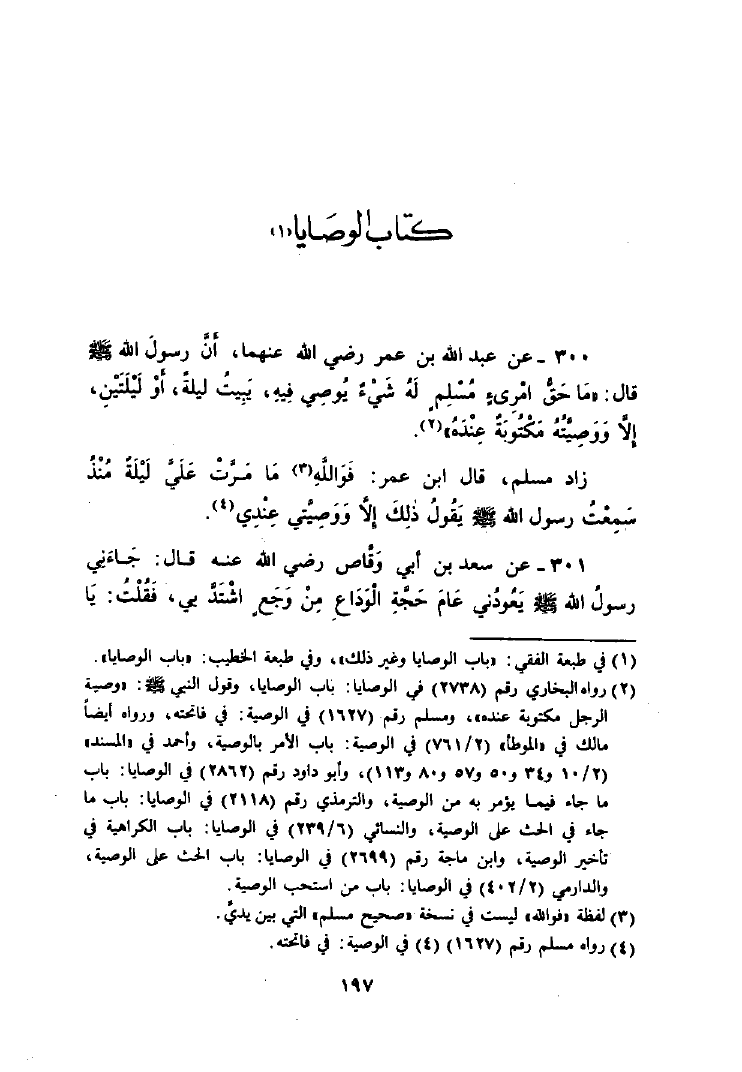 كتاب الوصايا(١)
٣٠٠ - عن عبد الله بن عمر رضي الله عنهما، أَنَّ رسولَ الله ﷺ
قال: «مَا حَقُّ امْرِىءٍ مُسْلِمٍ لَهُ شَيْءٌ يُوصِي فِيهِ، يَبِيتُ ليلةً، أَوْ لَيْلَتَيْنِ،
إِلَّا وَوَصِيَّتُهُ مَكْتُوبَةٌ عِنْدَهُ»(٢).
زاد مسلم، قال ابن عمر: فَوَاللَّهِ(٣) مَا مَرَّتْ عَلَيَّ لَيْلَةٌ مُنْذُ
سَمِعْتُ رسول الله ﷺ يَقُولُ ذٰلِكَ إِلَّا وَوَصِيَّتي عِنْدِي(٤).
٣٠١ - عن سعد بن أبي وَقَّاص رضي الله عنه قال: جَاءَنِي
رسولُ الله ﷺ يَعُودُني عَامَ حَجَّةِ الْوَدَاعِ مِنْ وَجَعٍ اشْتَدَّ بي، فَقُلْتُ: يَا
(١) في طبعة الفقي: «باب الوصايا وغير ذلك»، وفي طبعة الخطيب: «باب الوصايا».
(٢) رواه البخاري رقم (٢٧٣٨) في الوصايا: باب الوصايا، وقول النبي ﷺ: «وصية
الرجل مكتوبة عنده»، ومسلم رقم (١٦٢٧) في الوصية: في فاتحته، ورواه أيضاً
مالك في «الموطأ» (٧٦١/٢) في الوصية: باب الأمر بالوصية، وأحمد في «المسند»
(١٠/٢ و٣٤ و٥٠ و٥٧ و٨٠ و١١٣)، وأبو داود رقم (٢٨٦٢) في الوصايا: باب
ما جاء فيما يؤمر به من الوصية، والترمذي رقم (٢١١٨) في الوصايا: باب ما
جاء في الحث على الوصية، والنسائي (٢٣٩/٦) في الوصايا: باب الكراهية في
تأخير الوصية، وابن ماجة رقم (٢٦٩٩) في الوصايا: باب الحث على الوصية،
والدارمي (٤٠٢/٢) في الوصايا: باب من استحب الوصية.
(٣) لفظة «فوالله» ليست في نسخة «صحيح مسلم» التي بين يديَّ.
(٤) رواه مسلم رقم (١٦٢٧) (٤) في الوصية: في فاتحته.
١٩٧